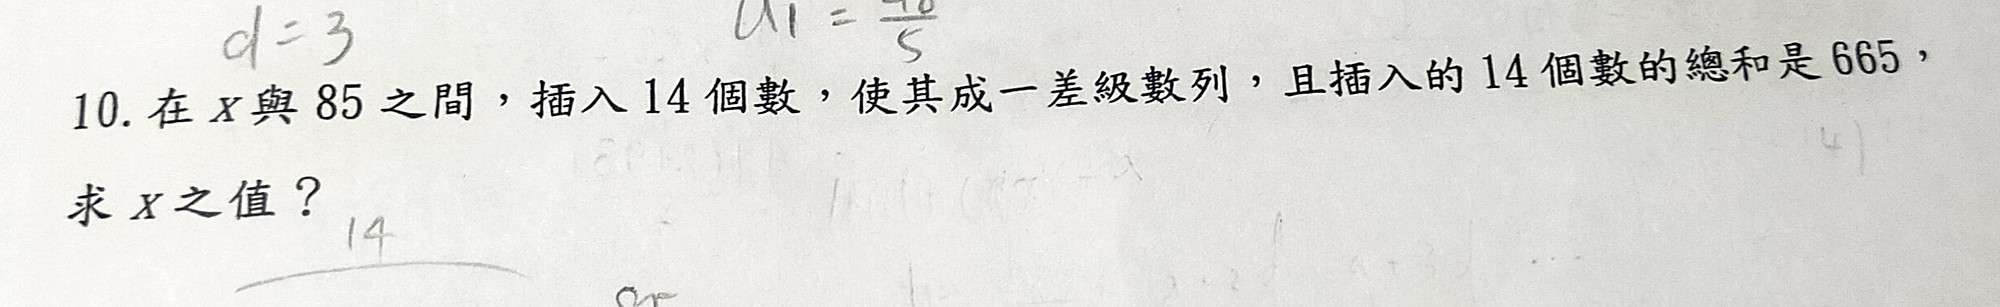 d=3
a1 = /5
10. 在 x 與 85 之間，插入 14 個數，使其成一差級數列，且插入的 14 個數的總和是 665，
求 x 之值？
14